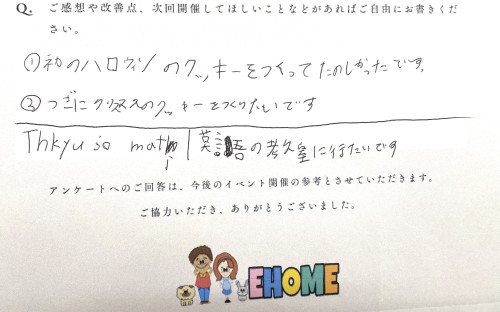 Q. ご感想や改善点、次回開催してほしいことなどがあればご自由にお書きくだ
さい。
①初のハロウィンのクッキーをつくってたのしかったです。
②つぎにクリスマスのクッキーをつくりたいです
Thkyu so math! 英語の考え室に行たいです
アンケートへのご回答は、今後のイベント開催の参考とさせていただきます。
ご協力いただき、ありがとうございました。
EHOME